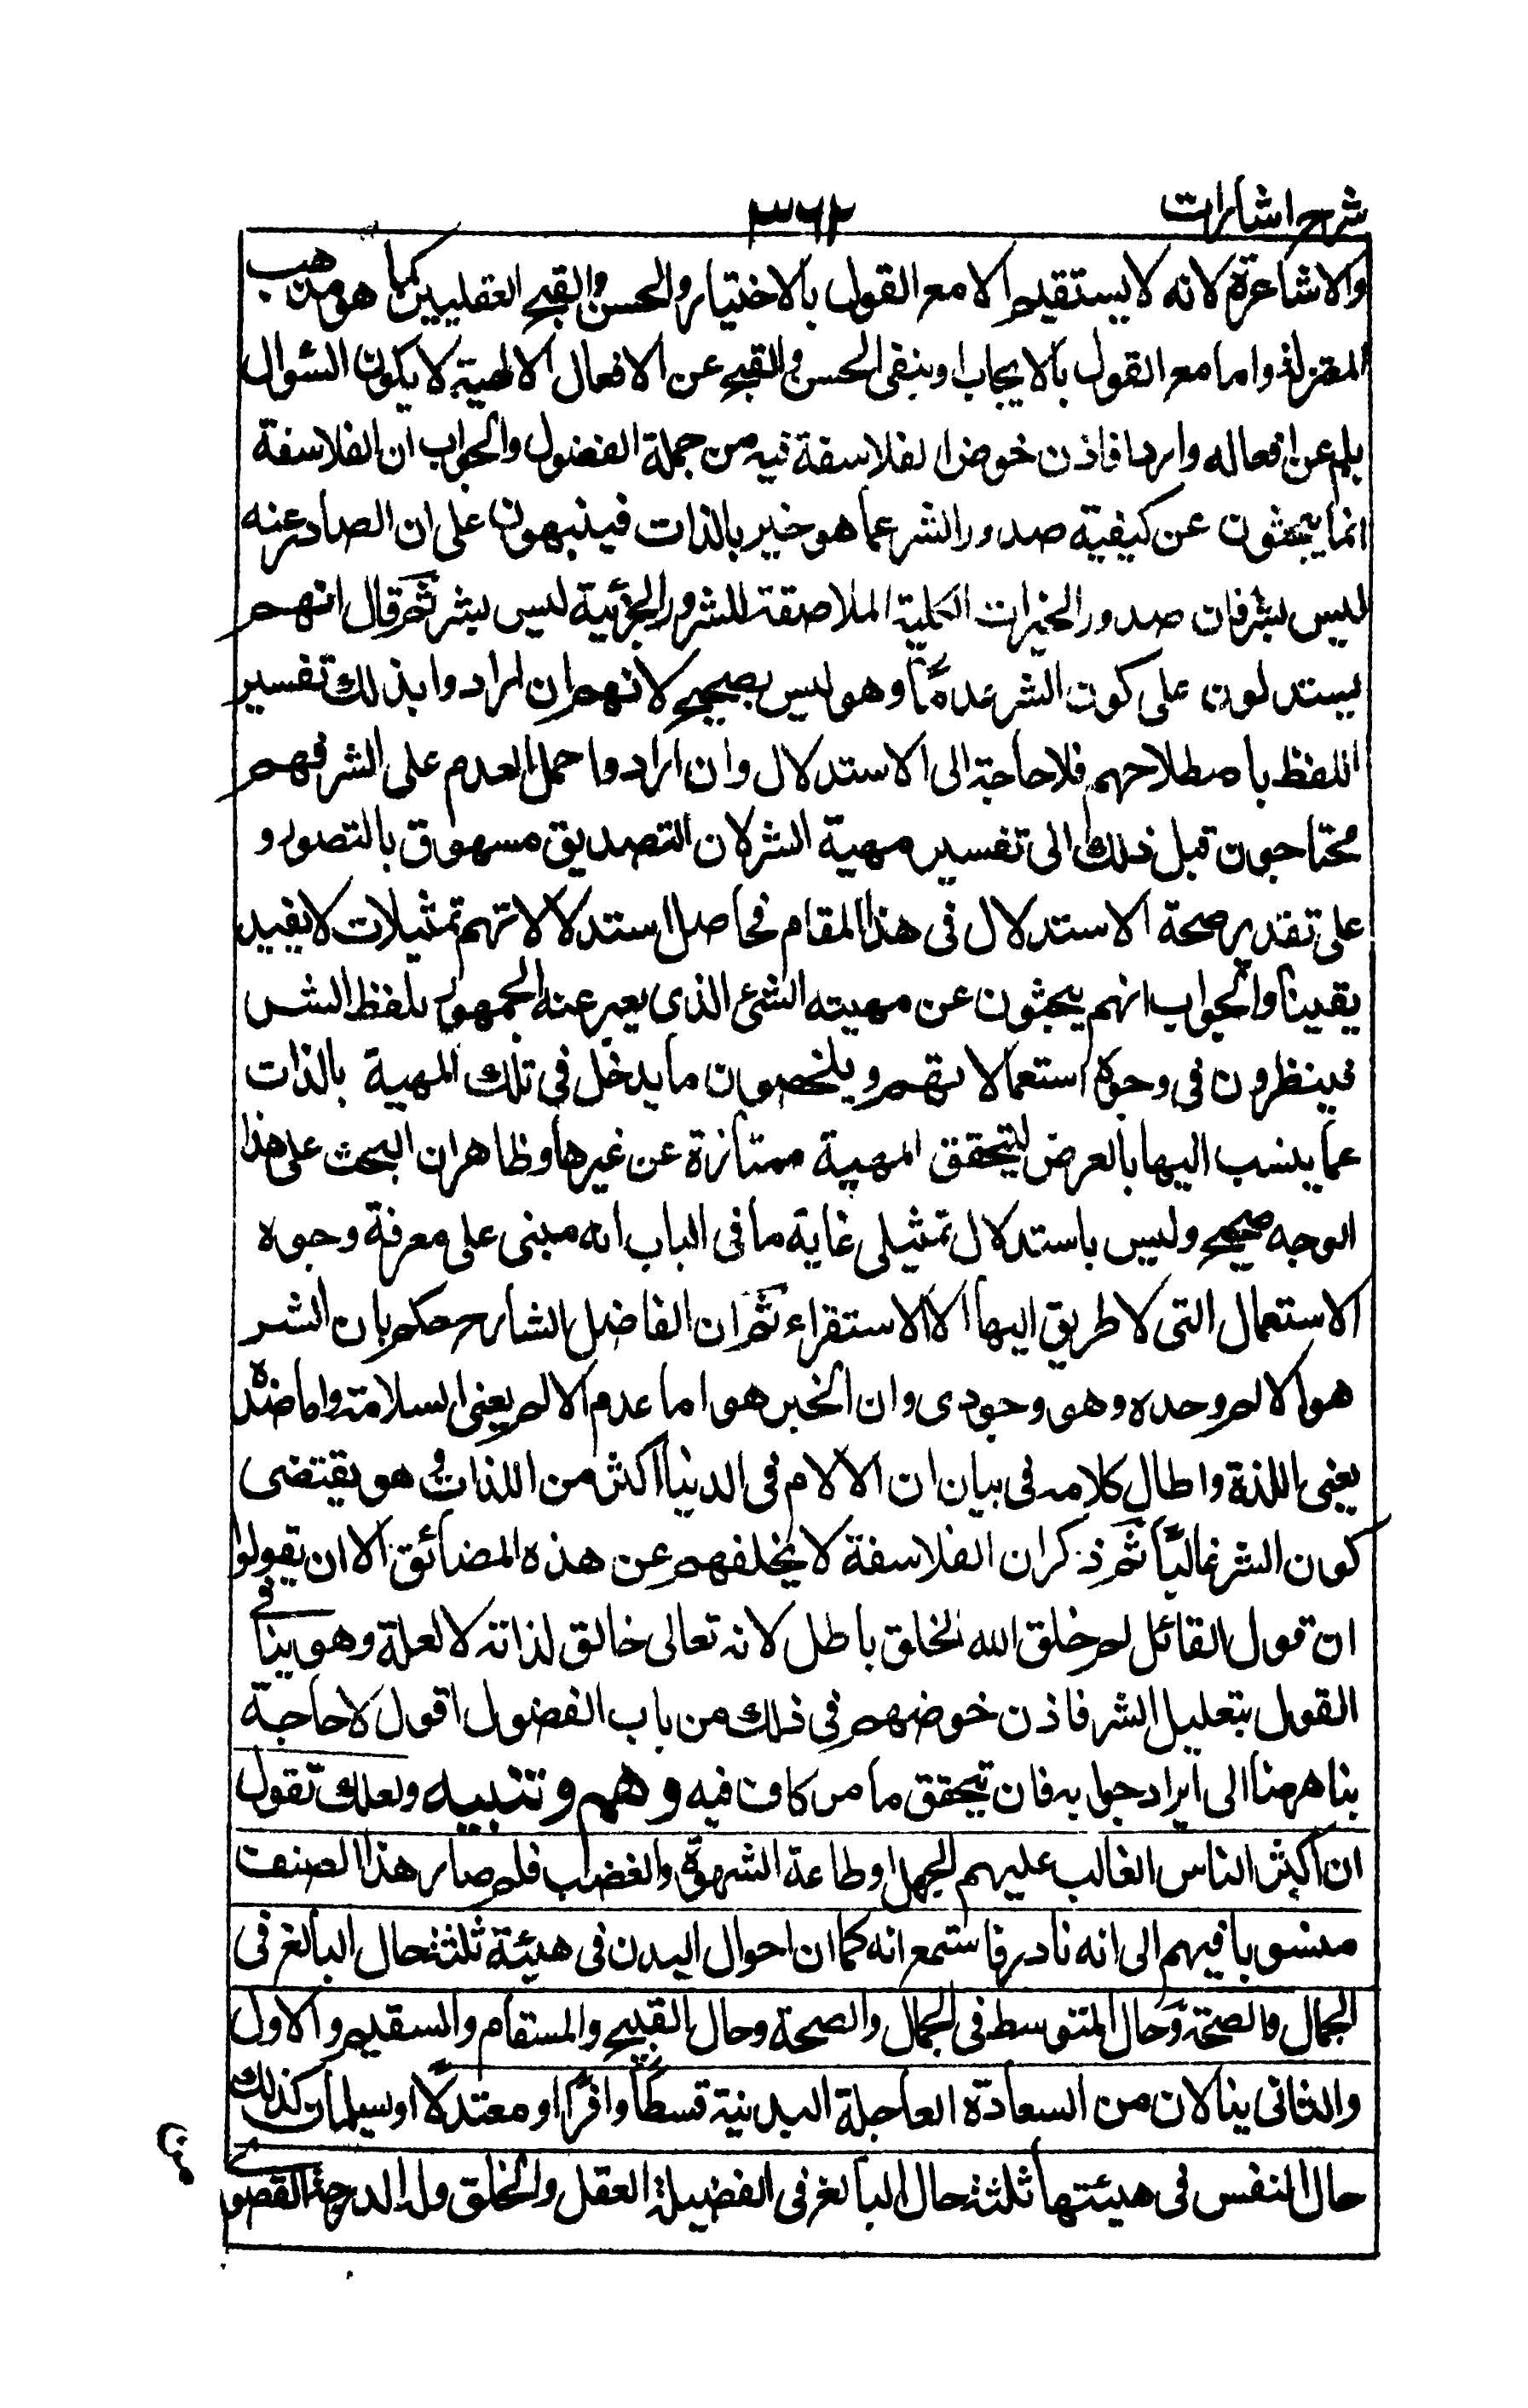 شرح اشارات
٣٦٢
والاشاعرة لانه لا يستقيم الا مع القول بالاختيار والحسن والقبح العقليين كما هو مذهب
المعتزلة واما مع القول بالايجاب او بنفى الحسن والقبح عن الافعال الالهية لا يكون السؤال
بلم عن افعاله واردا فاذن خوض الفلاسفة فيه من جملة الفضول والجواب ان الفلاسفة
انما يبحثون عن كيفية صدور الشر عما هو خير بالذات فينبهون على ان الصادر عنه
ليس بشر فان صدور الخيرات الكلية الملاصقة للشرور الجزئية ليس بشر ثم قال انهم
يستدلون على كون الشر عدما وهو ليس بصحيح لانهم ان ارادوا بذلك تفسير
اللفظ باصطلاحهم فلا حاجة الى الاستدلال وان ارادوا حمل العدم على الشر فهم
محتاجون قبل ذلك الى تفسير مهية الشر لان التصديق مسبوق بالتصور و
على تقدير صحة الاستدلال فى هذا المقام فحاصل استدلالاتهم تمثيلات لا يفيد
يقينا والجواب انهم يبحثون عن مهيته الشئ الذى يعبر عنه الجمهور بلفظ الشر
فينظرون فى وجوه استعمالاتهم ويلخصون ما يدخل فى تلك المهية بالذات
عما ينسب اليها بالعرض ليتحقق المهية ممتازة عن غيرها وظاهر ان البحث على هذا
الوجه صحيح وليس باستدلال تمثيلى غاية ما فى الباب انه مبنى على معرفة وجوه
الاستعمال التى لا طريق اليها الا الاستقراء ثم ان الفاضل الشارح حكم بان الشر
هو الالم وحده وهو وجودى وان الخير هو اما عدم الالم يعنى السلامة واما ضده
يعنى اللذة واطال كلامه فى بيان ان الآلام فى الدنيا اكثر من اللذات و هو يقتضى
كون الشر غالبا ثم ذكر ان الفلاسفة لا يخلفهم عن هذه المضائق الا ان تقولوا
ان قول القائل لم خلق الله الخلق باطل لانه تعالى خالق لذاته لا لعلة وهو ينافى
القول بتعليل الشر فاذن خوضهم فى ذلك من باب الفضول اقول لا حاجة
بنا ههنا الى ايراد جوابه فان تحقق ما مر كاف فيه وهم وتنبيه ولعلك تقول
ان اكثر الناس الغالب عليهم الجهل او طاعة الشهوة والغضب فلم صار هذا الصنف
منسوبا فيهم الى انه نادر فاستمع انه كما ان احوال البدن فى هيئة ثلثة حال البالغ فى
الجمال والصحة وحال المتوسط فى الجمال والصحة وحال القبيح والمسقام والسقيم والاول
والثانى ينالان من السعادة العاجلة البدنية قسطا وافرا او معتدلا او يسلمان كذلك
حال النفس فى هيئتها ثلثة حال البالغ فى الفضيلة العقل والخلق وله الدرجة القصوى